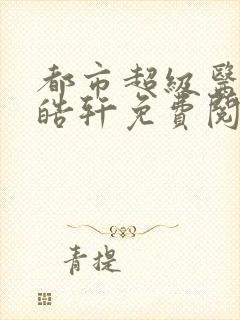 都市超級醫
皓軒免費閱
青提